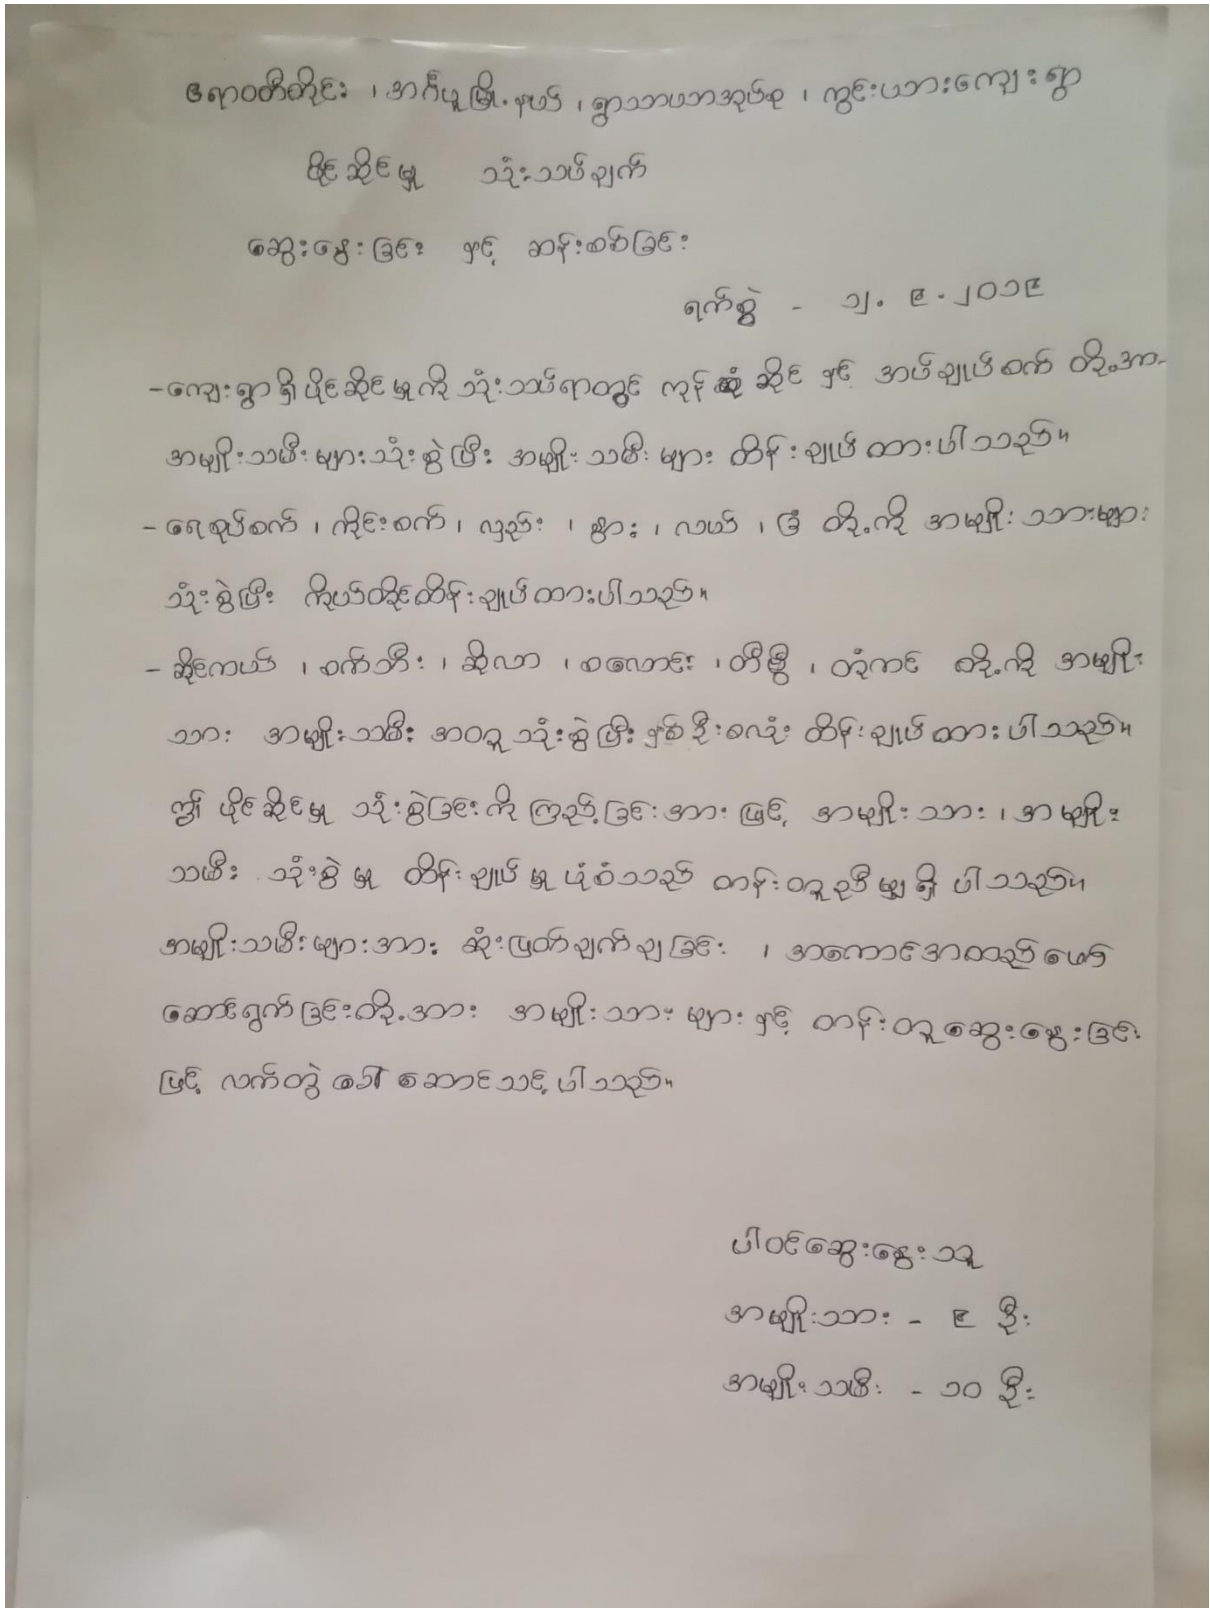 ဧရာဝတီတိုင်း ၊ အင်္ဂပူမြို့နယ် ၊ ရွာသာယာအုပ်စု ၊ ကွင်းပဘားကျေးရွာ
ပိုင်ဆိုင်မှု သုံးသပ်ချက်
ဆွေးနွေးခြင်း နှင့် ဆန်းစစ်ခြင်း
ရက်စွဲ - ၁၂.၉.၂၀၁၉
- ကျေးရွာရှိပိုင်ဆိုင်မှုကိုသုံးသပ်ရာတွင် ကုန်စုံဆိုင် နှင့် အပ်ချုပ်စက် တို့အား
အမျိုးသမီးများသုံးစွဲပြီး အမျိုးသမီးများ ထိန်းချုပ်ထားပါသည်။
- ရေစုပ်စက် ၊ ကိုင်းစက် ၊ လှည်း ၊ နွား ၊ လယ် ၊ ခြံ တို့ကို အမျိုးသားများ
သုံးစွဲပြီး ကိုယ်တိုင်ထိန်းချုပ်ထားပါသည်။
- ဆိုင်ကယ် ၊ စက်ဘီး ၊ ဆိုလာ ၊ စလောင်း ၊ တီဗွီ ၊ တုံကင် တို့ကို အမျိုး
သား အမျိုးသမီး အတူသုံးစွဲပြီး နှစ်ဦးစလုံး ထိန်းချုပ်ထားပါသည်။
ဤ ပိုင်ဆိုင်မှု သုံးစွဲခြင်းကို ကြည့်ခြင်းအားဖြင့် အမျိုးသား ၊ အမျိုး
သမီး သုံးစွဲမှု ထိန်းချုပ်မှုပုံစံသည် တန်းတူညီမျှရှိပါသည်။
အမျိုးသမီးများအား ဆုံးဖြတ်ချက်ချခြင်း ၊ အကောင်အထည်ဖော်
ဆောင်ရွက်ခြင်းတို့အား အမျိုးသားများနှင့် တန်းတူဆွေးနွေးခြင်း
ဖြင့် လက်တွဲခေါ်ဆောင်သင့်ပါသည်။
ပါဝင်ဆွေးနွေးသူ
အမျိုးသား - ၉ ဦး
အမျိုးသမီး - ၁၀ ဦး